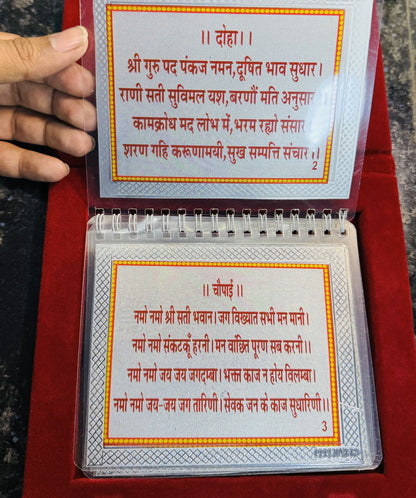 ।। दोहा।।
श्री गुरु पद पंकज नमन,दूषित भाव सुधार।
राणी सती सुविमल यश,बरणौं मति अनुसार
कामक्रोध मद लोभ में,भरम रह्यो संसार
शरण गहि करूणामयी,सुख सम्पत्ति संचार।।
2
।। चौपाई ।।
नमो नमो श्री सती भवान। जग विख्यात सभी मन मानी।
नमो नमो संकटकूँ हरनी।। मन वांछित पूरण सब करनी।।
नमो नमो जय जय जगदम्बा। भक्त काज न होय विलम्बा।
नमो नमो जय-जय जग तारिणी। सेवक जन के काज सुधारिणी।।
3